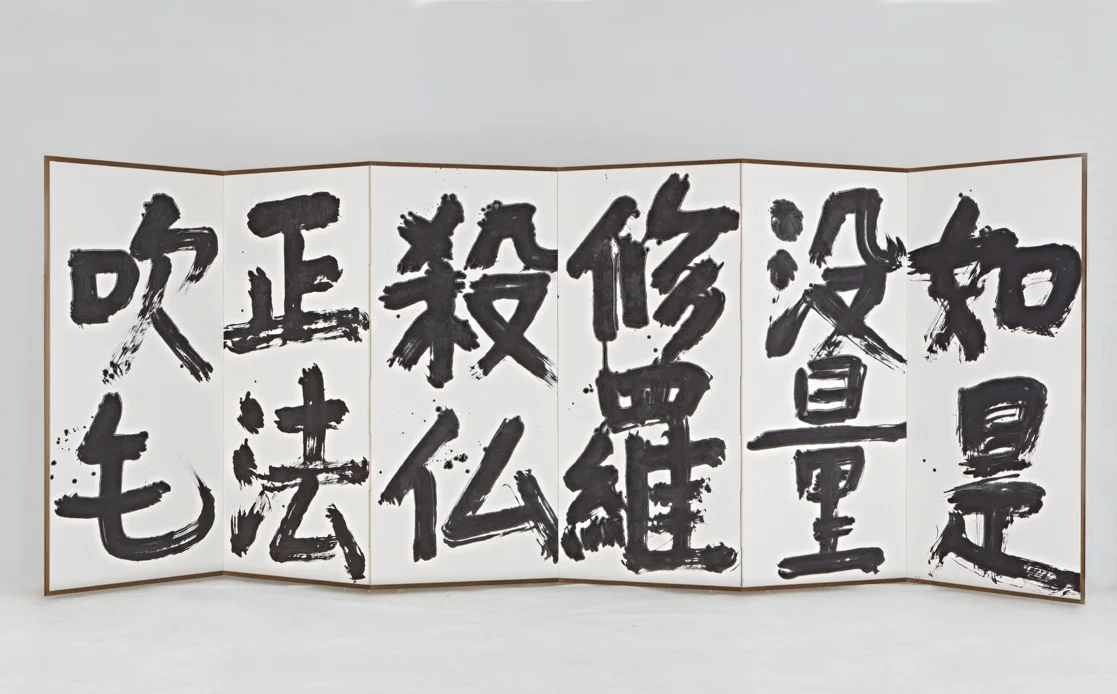 如是
没量
修羅
殺仏
正法
吹毛